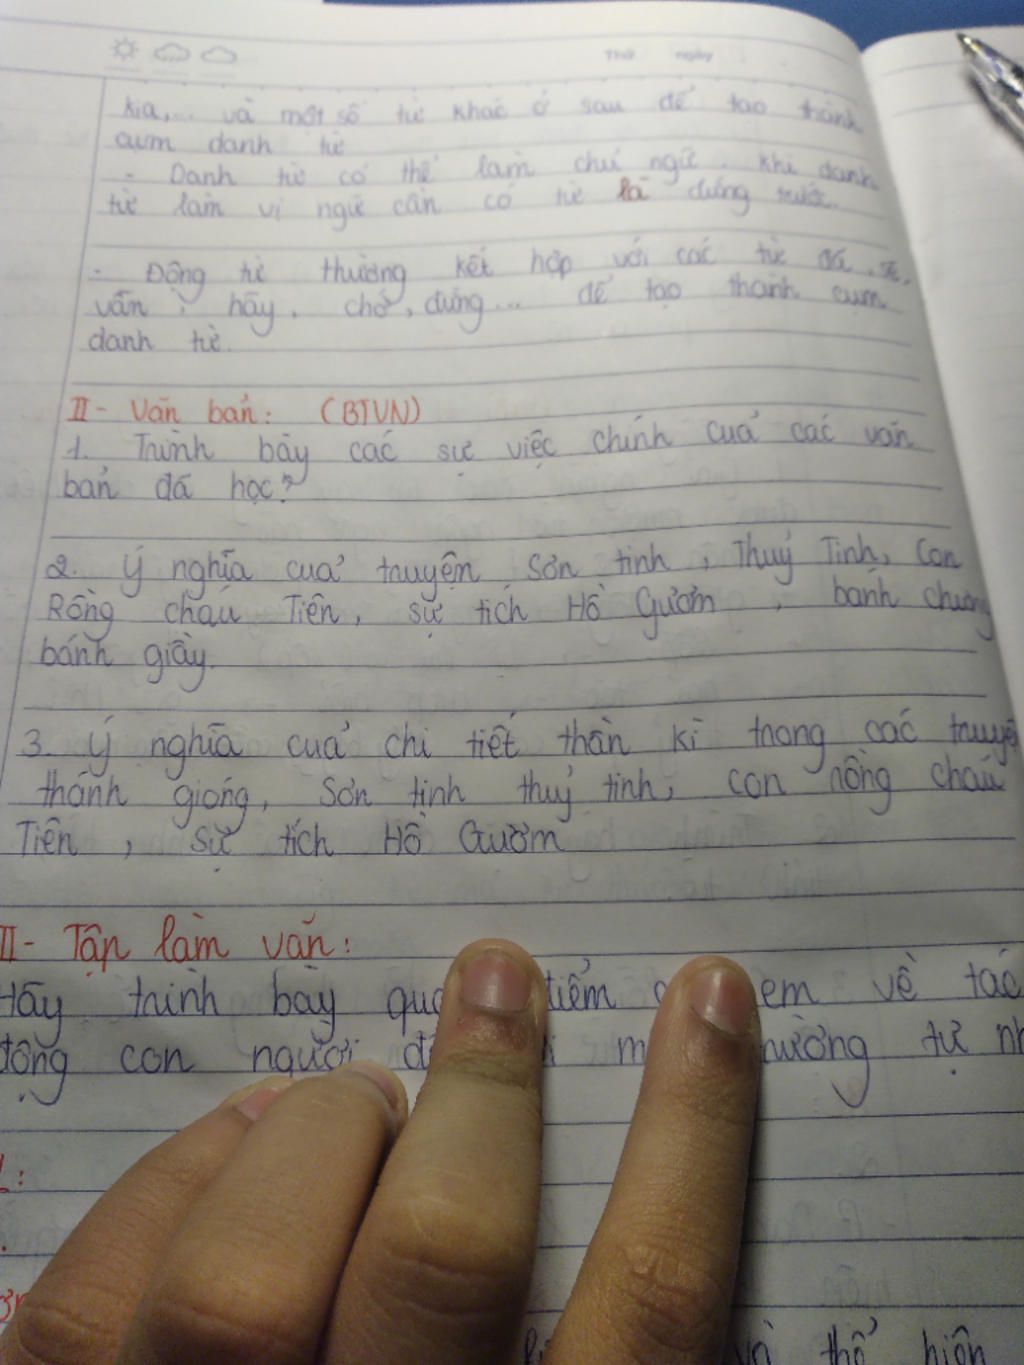 Thứ ngày
kia,... và một số từ khác ở sau để tạo thành
cụm danh từ
- Danh từ có thể làm chủ ngữ. khi danh
từ làm vị ngữ cần có từ là đứng trước.
- Động từ thường kết hợp với các từ đã, sẽ,
vẫn, hãy, chớ, đừng... để tạo thành cụm
danh từ.
II - Văn bản: (BTVN)
1. Trình bày các sự việc chính của các văn
bản đã học?
2. Ý nghĩa của truyện Sơn tinh, Thuỷ Tinh, Con
Rồng cháu Tiên, sự tích Hồ Gươm, bánh chưng
bánh giầy.
3. Ý nghĩa của chi tiết thần kì trong các truyện
thánh gióng, Sơn tinh thuỷ tinh, con rồng cháu
Tiên, sự tích Hồ Gươm
II - Tập làm văn:
Hãy trình bày em về tác
động con người tự nh
và thể hiện